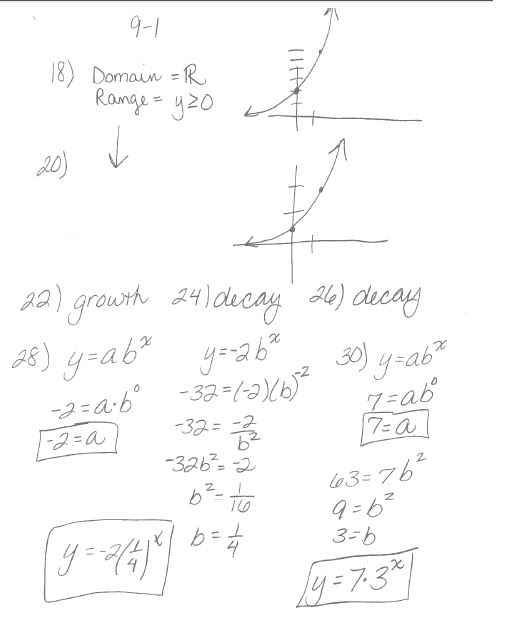 9-1
18) Domain = ℝ
Range = y≥0
20)
22) growth 24) decay 26) decay
28) y=ab^x
-2=a·b^0
-2=a
y=-2b^x
-32=(-2)(b)^-2
-32=-2/b^2
-32b^2=-2
b^2=1/16
b=1/4
y=-2(1/4)^x
30) y=ab^x
7=ab^0
7=a
63=7b^2
9=b^2
3=b
y=7·3^x